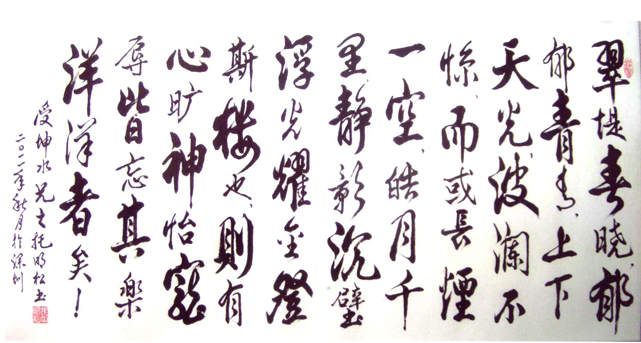 翠堤春晓，郁
郁青青，上下
天光，波澜不
惊，而或长煙
一空，皓月千
里，静影沉璧
浮光耀金，登
斯楼也，则有
心旷神怡，宠
辱皆忘，其樂
洋洋者矣！
受坤水兄之托明松书
二〇一一年秋月於深圳